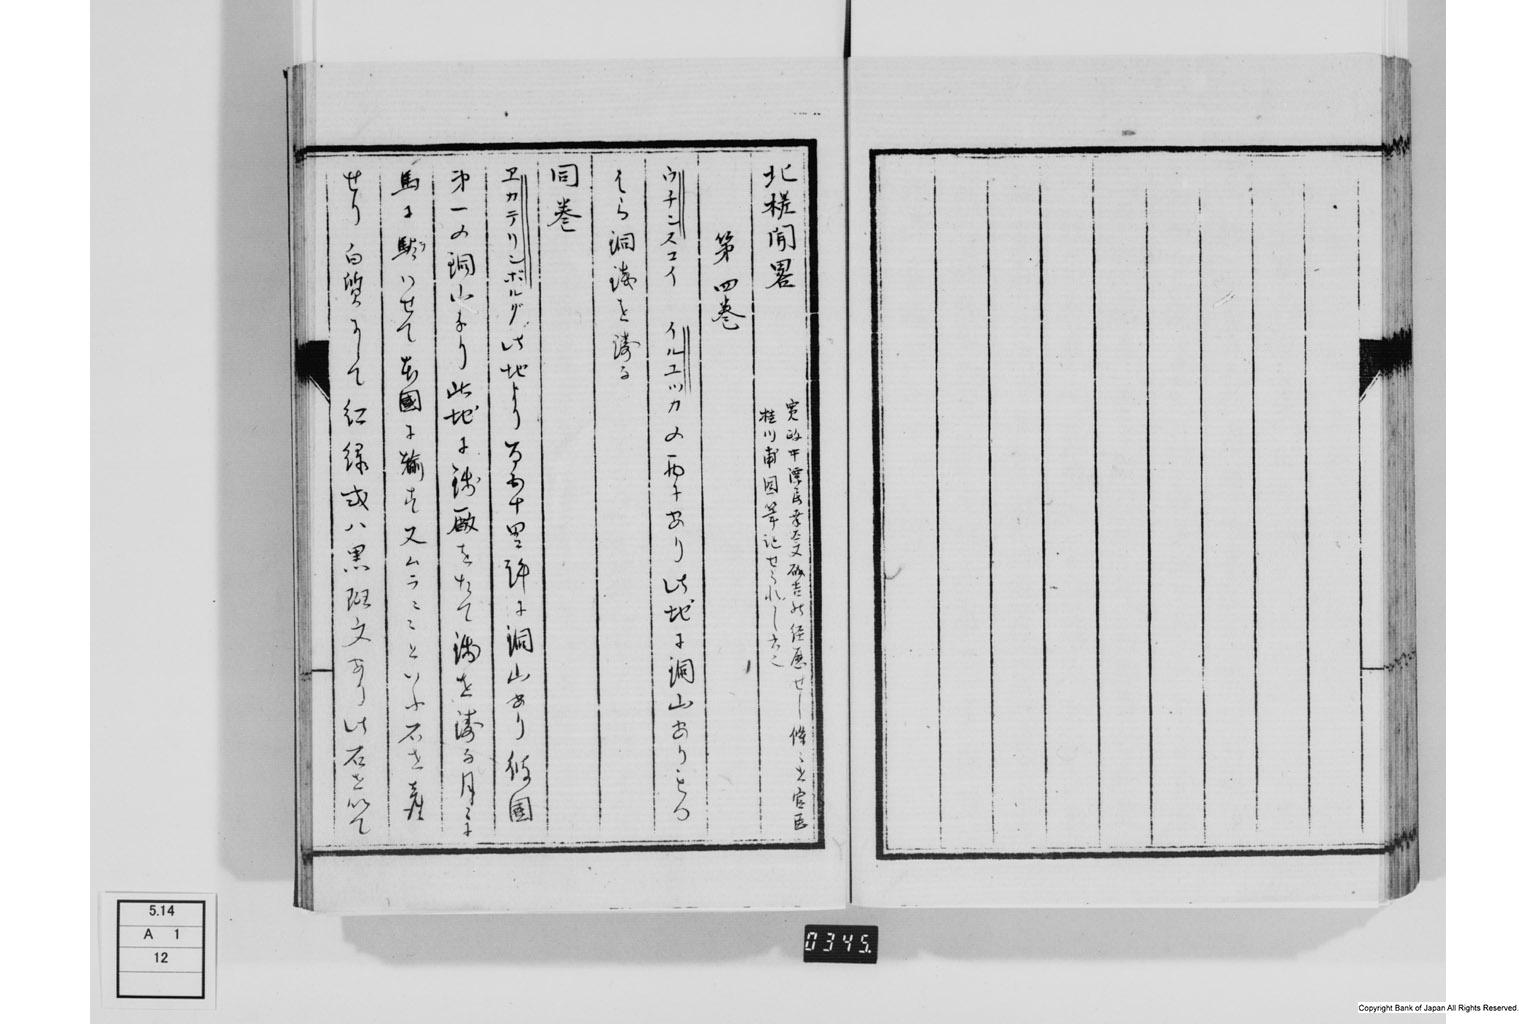 北槎聞畧
寛政中漂民幸太夫磯吉等経歴せし條々を官医
桂川甫周筆記せられし書也
第四巻
ウチンスコイ イルコツカの西にあり此地に銅山あり
銅錢を鋳る
同巻
ヱカテリンボルグ此地より 十里許に銅山あり彼國
第一の銅山なり此地に錢廠をたてて錢を鋳る月々に
馬に駄はせて本國に輸す又ムラミこといふ石を産
せり白質にして紅緑或ハ黒斑文あり此石を以て
5.14
A 1
12
0345.
Copyright Bank of Japan All Rights Reserved.